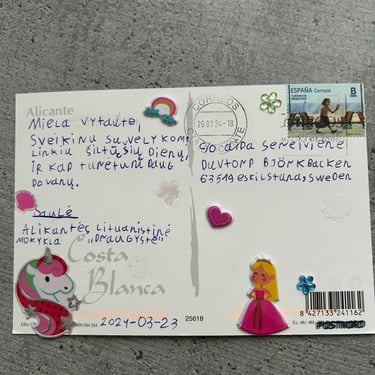 Alicante
CORREOS
26.03.24-18
ESPAÑA Correos
B
Miela Vytaute,
Sveikinu su Velykom
Linkiu šiltųsių dienų,
ir kad turėtum daug
dovanų.
Saulė
Alikantės lituanistinė
mokykla "Draugystė"
c/o Aida
Duvtorp Björkbacken
63519 Eskilstuna, Sweden
Costa
Blanca
2024-03-23
25618
8 427133 241162